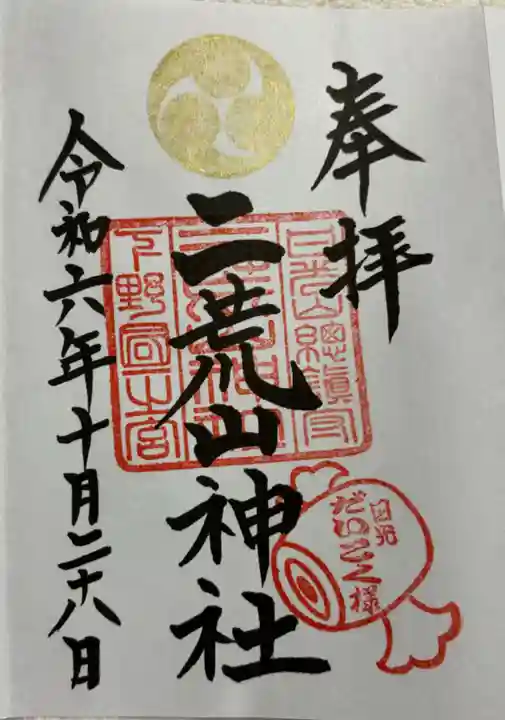 奉拝
日光山總鎮守
二荒山神社
下野國一之宮
日光
だいこく様
令和六年十月二十八日